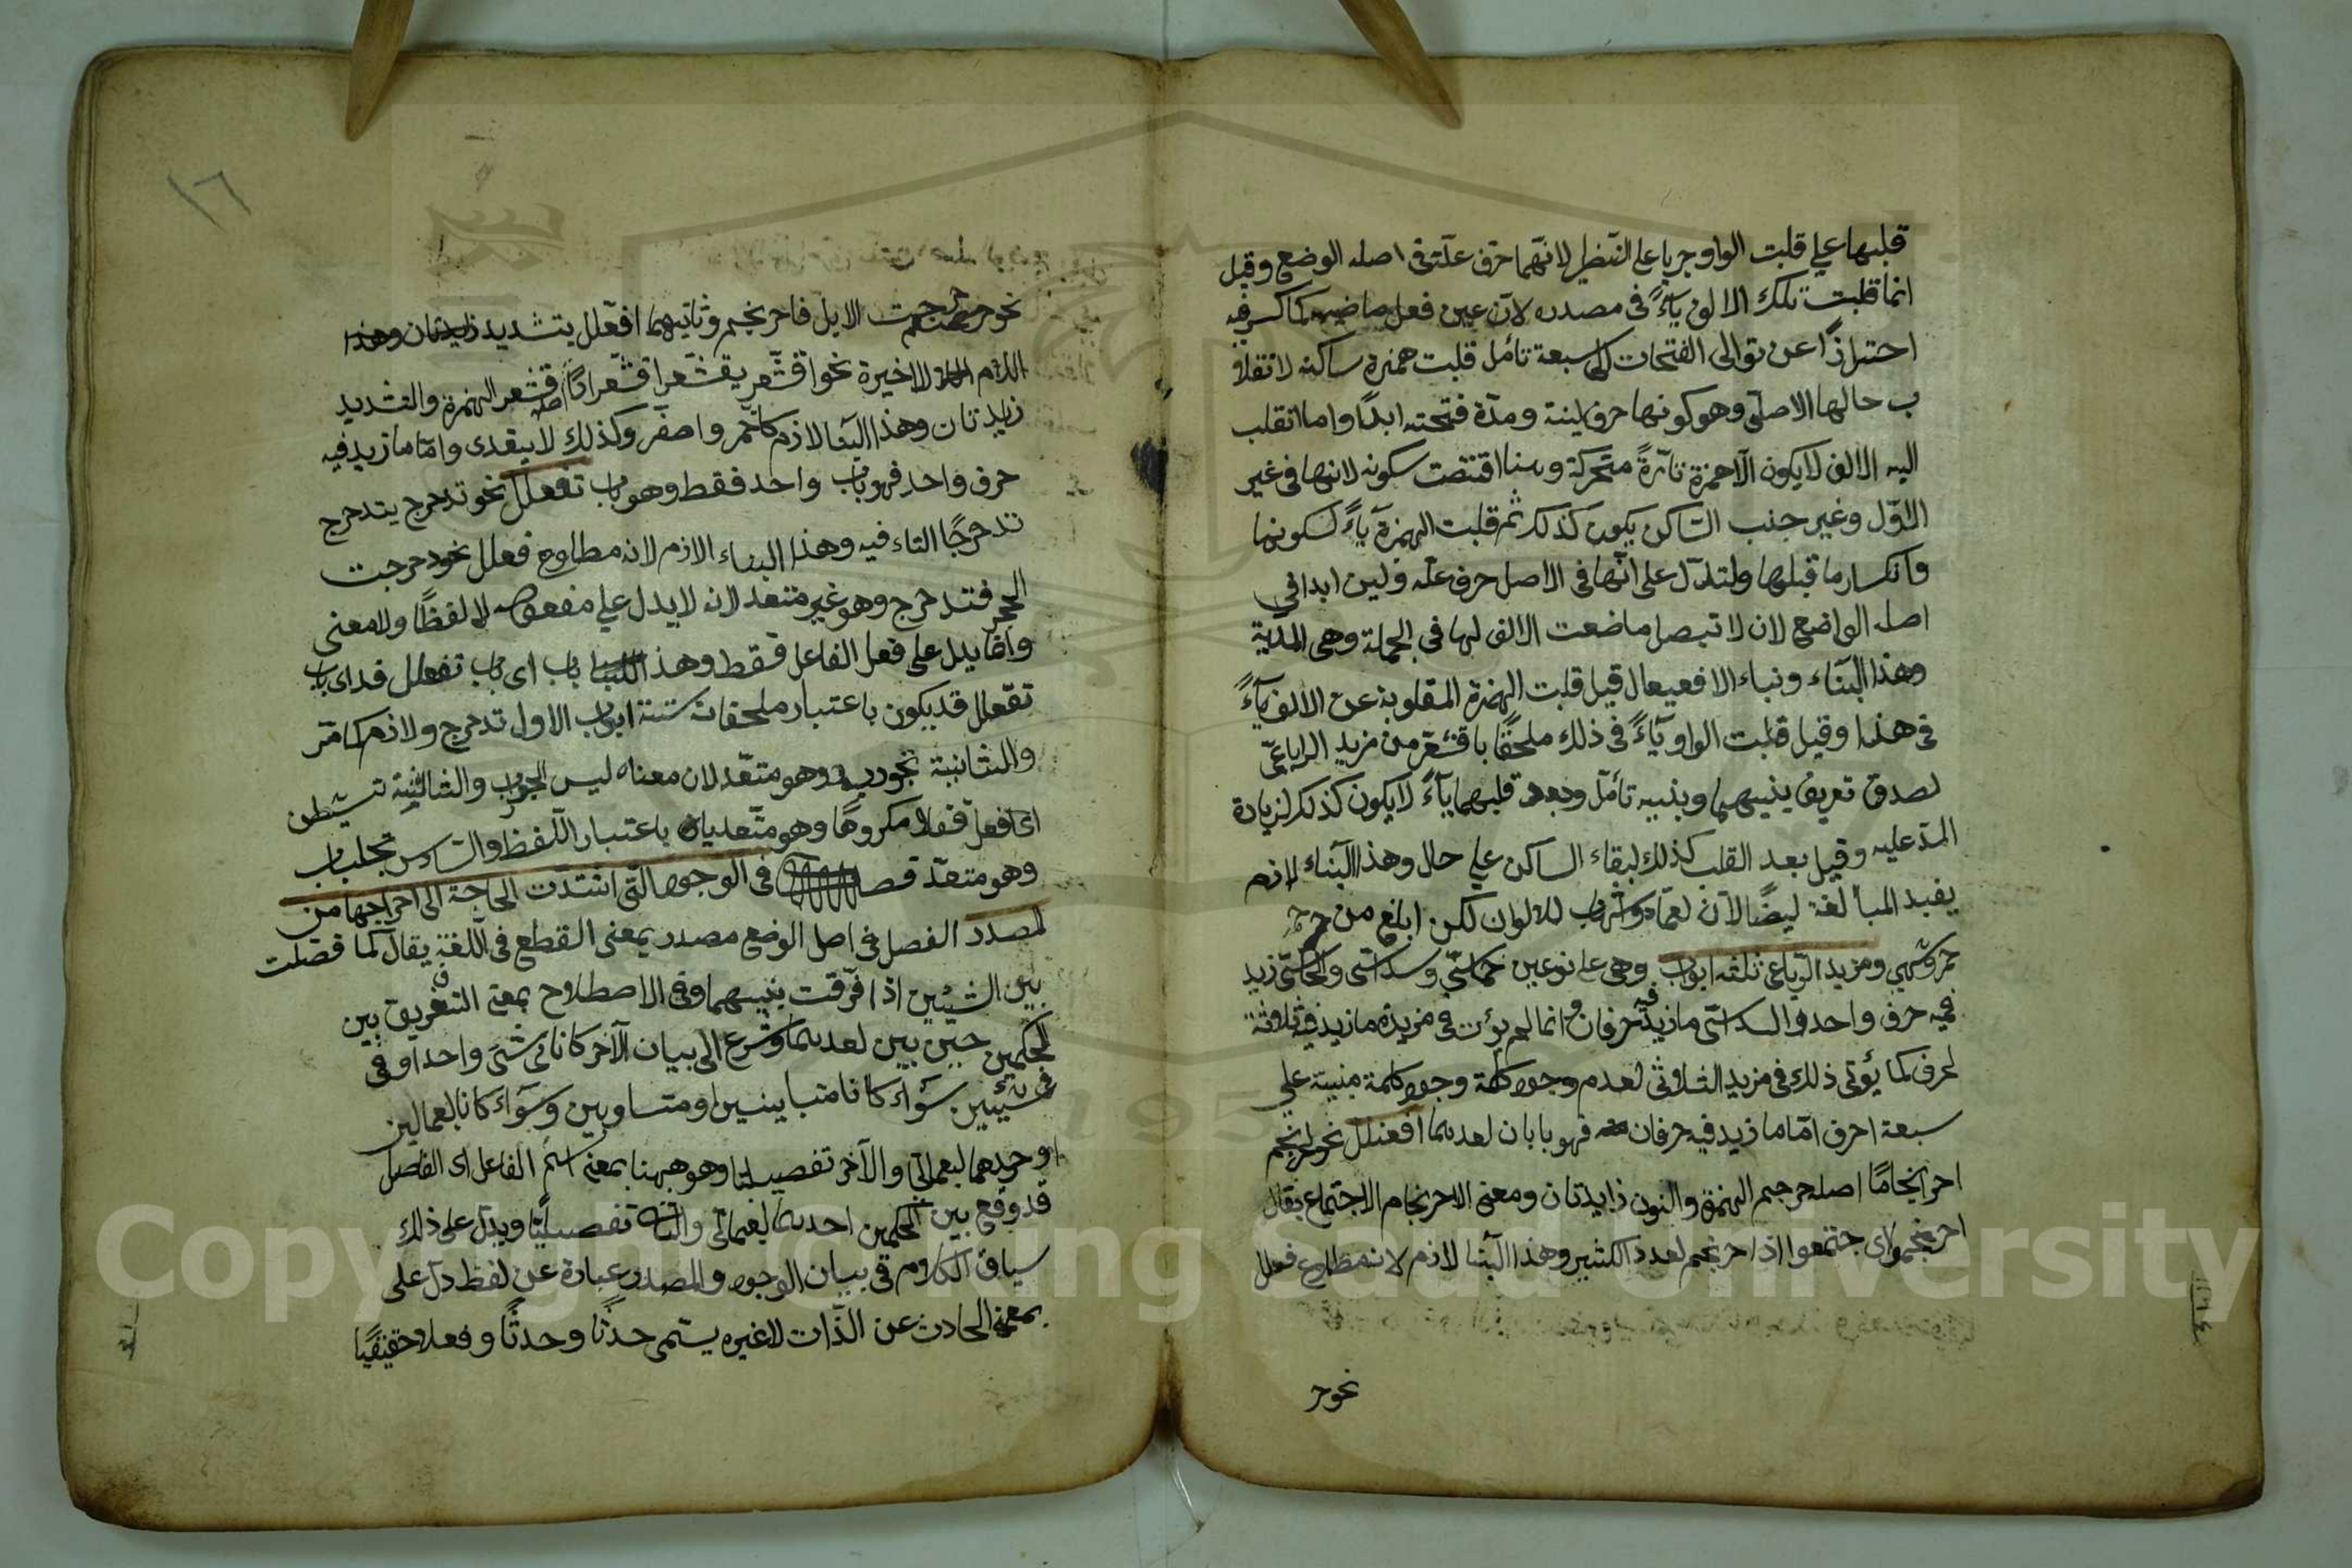 قلبها على قلبت الواو جريا على النظير لانهما حرف علة في اصله الوضع وقيل
انما قلبت تلك الالف ياءً في مصدره لان عين فعل ماضيه كما كسر فيه
احترازًا عن توالى الفتحات السبعة تأمل قلبت همزة ساكنة لانقلا
ب حالها الاصلى وهو كونها حرف لينة ومدة فتحته ابدًا واما انقلب
اليه الالف لا يكون الا همزة تارةً متحركة وهنا اقتضت سكونه لانها في غير
الاول وغير جنب الساكن يكون كذلك ثم قلبت الهمزة ياءً لسكونها
وانكسار ما قبلها ولتدل على انها في الاصل حرف علة ولين ابدا في
اصله الواضع لان لا تبصر ما ضعت الالف لها في الجملة وهى المدية
وهذا البناء وبناء الافعيعال قيل قلبت الهمزة المقلوبة عن الالف ياءً
في هذا وقيل قلبت الواو ياءً في ذلك ملحقًا باقشعر من مزيد الرباعى
لصدق تعريف بينهما وبنيه تأمل وبعد قلبهما ياءً لا يكون كذلك لزيادة
المد عليه وقيل بعد القلب كذلك لبقاء الساكن على حال وهذا البناء لازم
يفيد المبالغة ايضًا لان احمار واشهاب للالوان لكن ابلغ من حمر
حمر وشهب ومزيد الرباعى ثلثة ابواب وهى على نوعين خماسى وسداسى والخماسى زيد
فيه حرف واحد والسداسى ما زيد فيه حرفان وانما لم يؤت في مزيده ما زيد فيه ثلاثة
احرف كما يؤتى ذلك في مزيد الثلاثى لعدم وجود كلمة وجود كلمة مبنية على
سبعة احرف اما ما زيد فيه حرفان فهو بابان احدهما افعنلل نحو احرنجم
احرنجامًا اصله حرجم الهمزة والنون زايدتان ومعنى الاحرنجام الاجتماع يقال
احرنجموا اى اجتمعوا اذا احرنجم لعدد الكثير وهذا البنا لازم لانه مطاوع فعلل
نحو حر
١٦
نحو حرجمت الابل فاحرنجم وثانيهما افعلل بتشديد زايدتان وهذا
اللام الاخيرة نحو اقشعر يقشعر اقشعرارًا اصله قشعر الهمزة والتشديد
زايدتان وهذا البنا لازم كاحمر واصفر وكذلك لا يتعدى واما ما زيد فيه
حرف واحد فهو باب واحد فقط وهو باب تفعلل نحو تدحرج يتدحرج
تدحرجًا التاء فيه وهذا البناء الازم لانه مطاوع فعلل نحو دحرجت
الحجر فتدحرج وهو غير متعد لانه لا يدل على مفعوله لا لفظًا ولا معنى
وانما يدل على فعل الفاعل فقط وهذا الباب اى باب تفعلل قد اى باب
تفعلل قد يكون باعتبار ملحقاته ستة ابواب الاول تدحرج ولازم كما مر
والثانية تجورب وهو متعد لان معناه لبس الجورب والثالثة تشيطن
اى فعل فعلا مكروهًا وهو متعديان باعتبار اللفظ والسادس تجلباب
وهو متعد فصل في الوجوه التى اشتدت الحاجة الى اخراجها من
المصدر الفصل في اصل الوضع مصدر بمعنى القطع في اللغة يقال كما فصلت
بين الشيئين اذا فرقت بينهما وفي الاصطلاح بمعنى التفريق بين
الحكمين حين بين احدهما وشرع الى بيان الآخر كانا في شئ واحد او في
شيئين سواء كانا متباينين او متساويين وسواء كانا اجمالين
او احدهما اجمالى والآخر تفصيليا وهو ههنا بمعنى اسم الفاعل اى الفاصل
قد وقع بين الحكمين احدهما اجمالى والثانى تفصيليًا ويدل على ذلك
سياق الكلام في بيان الوجوه والمصدر عبارة عن لفظ دل على
بمعنى الحادث عن الذات لا غيره يسمى حدثًا وحدثًا وفعلا حقيقيًا
Copyright © King Saud University